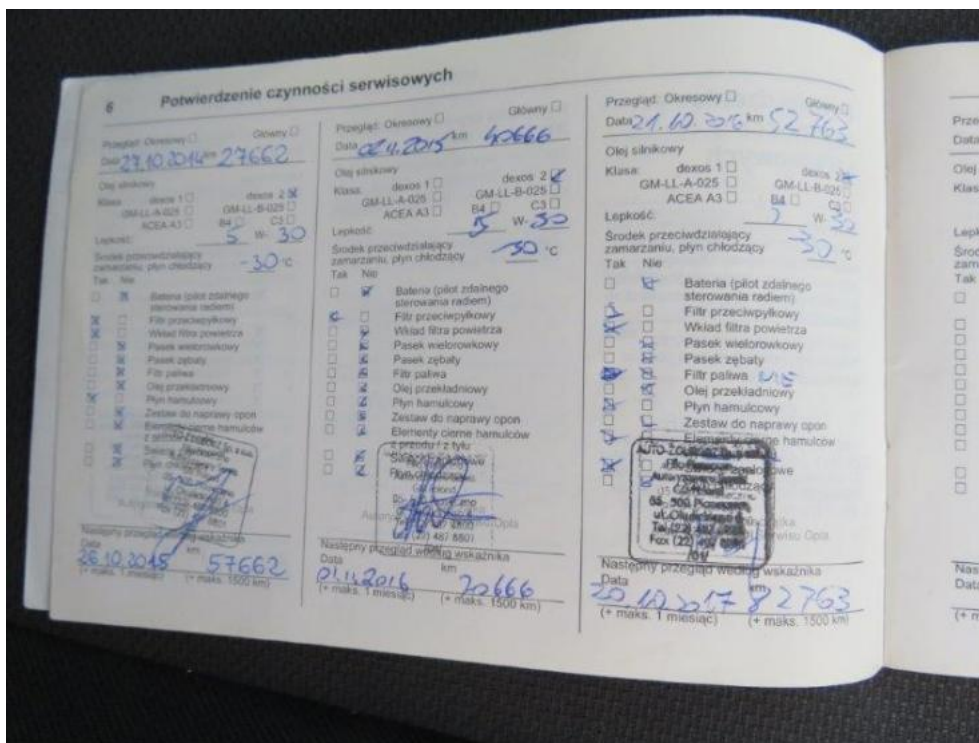 6 Potwierdzenie czynności serwisowych
Przegląd: Okresowy Główny
Data 27.10.2014 km 27662
Olej silnikowy
Klasa: dexos 1 dexos 2
GM-LL-A-025 GM-LL-B-025
ACEA A3 B4 C3
Lepkość: 5 W- 30
Środek przeciwdziałający
zamarzaniu, płyn chłodzący -30 °C
Tak Nie
Bateria (pilot zdalnego
sterowania radiem)
Filtr przeciwpyłkowy
Wkład filtra powietrza
Pasek wielorowkowy
Pasek zębaty
Filtr paliwa
Olej przekładniowy
Płyn hamulcowy
Zestaw do naprawy opon
Elementy cierne hamulców
z przodu i z tyłu
Następny przegląd według wskaźnika
Data km
26.10.2015 57662
(+ maks. 1 miesiąc) (+ maks. 1500 km)
Przegląd: Okresowy Główny
Data 02.11.2015 km 40666
Olej silnikowy
Klasa: dexos 1 dexos 2
GM-LL-A-025 GM-LL-B-025
ACEA A3 B4 C3
Lepkość: 5 W- 30
Środek przeciwdziałający
zamarzaniu, płyn chłodzący -30 °C
Tak Nie
Bateria (pilot zdalnego
sterowania radiem)
Filtr przeciwpyłkowy
Wkład filtra powietrza
Pasek wielorowkowy
Pasek zębaty
Filtr paliwa
Olej przekładniowy
Płyn hamulcowy
Zestaw do naprawy opon
Elementy cierne hamulców
z przodu i z tyłu
Następny przegląd według wskaźnika
Data km
01.11.2016 70666
(+ maks. 1 miesiąc) (+ maks. 1500 km)
Przegląd: Okresowy Główny
Data 21.10.2016 km 52763
Olej silnikowy
Klasa: dexos 1 dexos 2
GM-LL-A-025 GM-LL-B-025
ACEA A3 B4 C3
Lepkość: W- 30
Środek przeciwdziałający
zamarzaniu, płyn chłodzący -30 °C
Tak Nie
Bateria (pilot zdalnego
sterowania radiem)
Filtr przeciwpyłkowy
Wkład filtra powietrza
Pasek wielorowkowy
Pasek zębaty
Filtr paliwa
Olej przekładniowy
Płyn hamulcowy
Zestaw do naprawy opon
Elementy cierne hamulców
05-500 Piaseczno
Tel (22) 487
Fax (22)
Serwisu Opla
Następny przegląd według wskaźnika
Data km
20.10.2017 82763
(+ maks. 1 miesiąc) (+ maks. 1500 km)
Data
Olej
Tak
Data